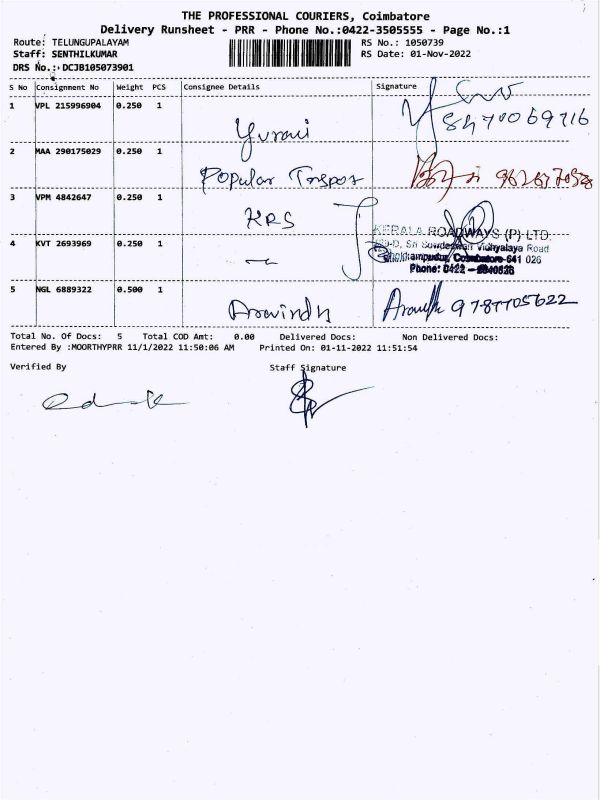 THE PROFESSIONAL COURIERS, Coimbatore
Delivery Runsheet - PRR - Phone No.:0422-3505555 - Page No.:1
Route: TELUNGUPALAYAM RS No.: 1050739
Staff: SENTHILKUMAR RS Date: 01-Nov-2022
DRS No.: DCJB105073901
S No Consignment No Weight PCS Consignee Details Signature
1 VPL 215996904 0.250 1
Yuvani
2 MAA 290175029 0.250 1
Popular Trspor
3 VPM 4842647 0.250 1 KRS
KERALA ROADWAYS (P) LTD.
4 KVT 2693969 0.250 1 Vidhyalaya Road
Coimbatore-641 026
Phone: 0422 -
5 NGL 6889322 0.500 1
Aravindh 9787705622
Total No. Of Docs: 5 Total COD Amt: 0.00 Delivered Docs: Non Delivered Docs:
Entered By :MOORTHYPRR 11/1/2022 11:50:06 AM Printed On: 01-11-2022 11:51:54
Verified By Staff Signature